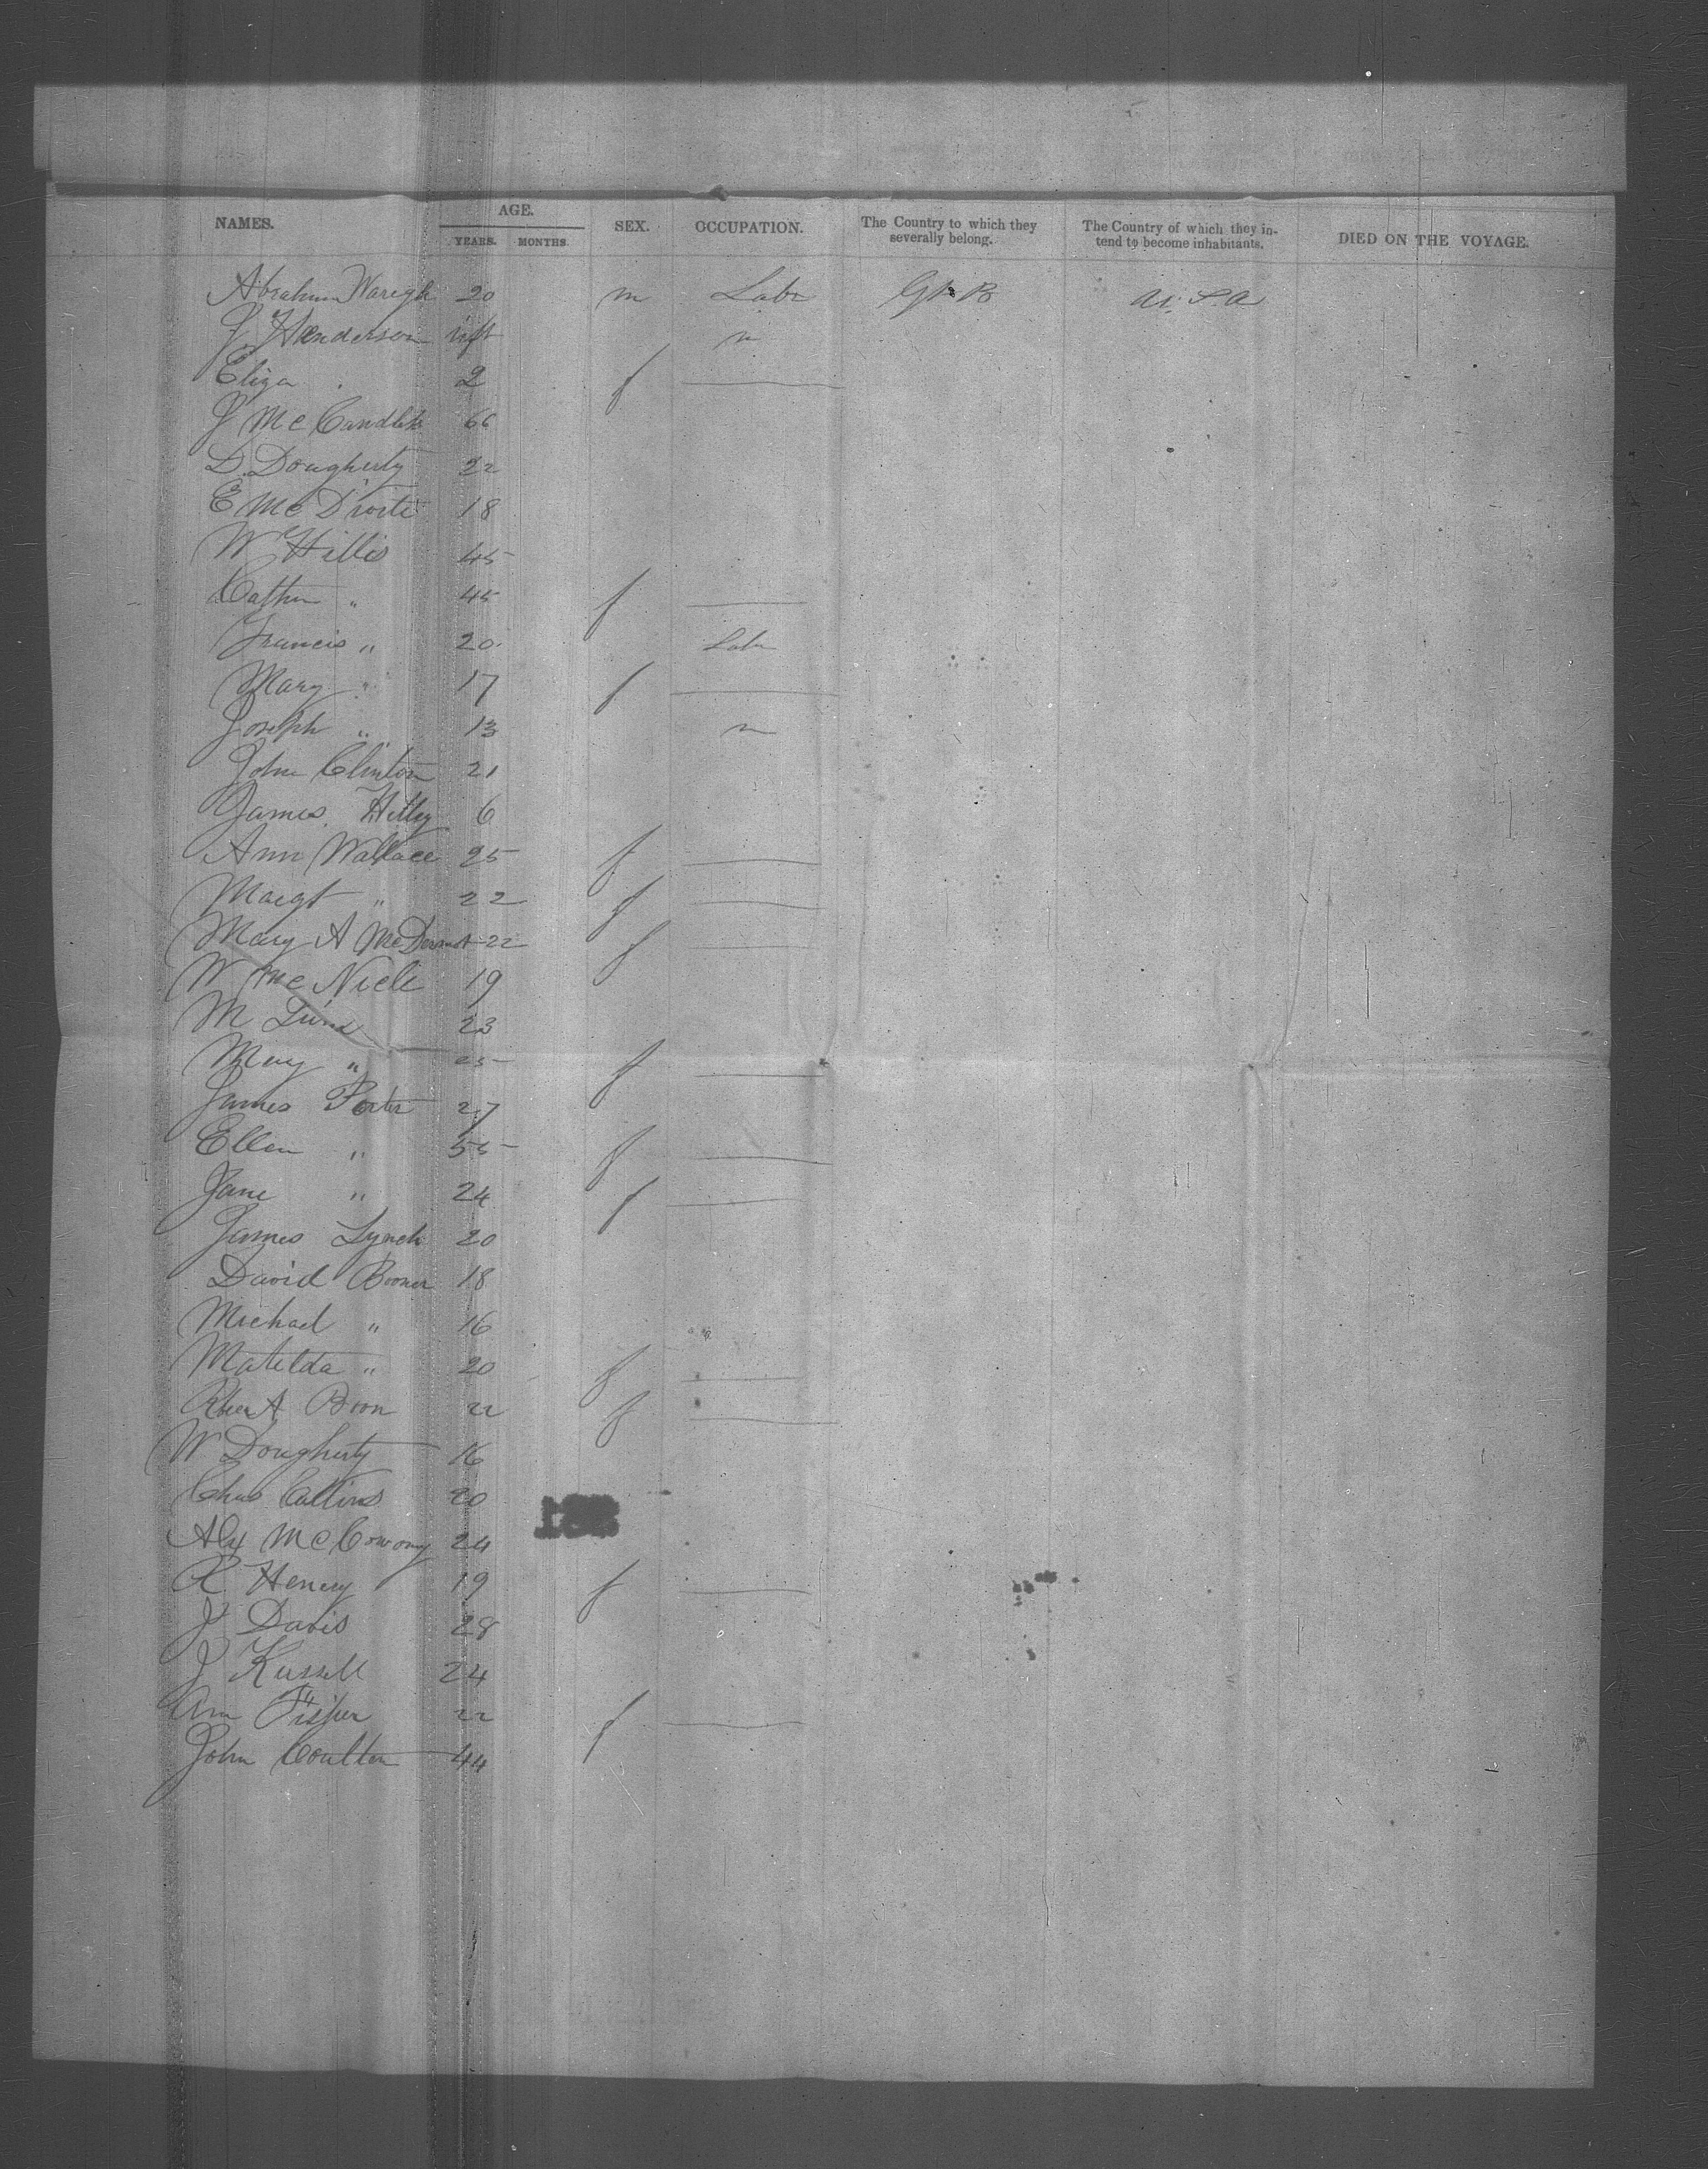 NAMES. AGE. SEX. OCCUPATION. The Country to which they severally belong. The Country of which they intend to become inhabitants. DIED ON THE VOYAGE.
YEARS. MONTHS.
Abraham 20 m Labr Gt B U.S.A
J. Henderson inft m
Eliza 2 f
J McCandless 66
D. Dougherty 22
E Mc 18
W Hillis 45
Cathn " 45 f
Francis " 20 Labr
Mary " 17 f
Joseph " 13 m
John Clinton 21
James 6
Ann Wallace 25 f
Margt " 22 f
Mary A McDermot 22 f
W McNiele 19
M 23
Mary " 25 f
James Porter 27
Ellen " 55 f
Jane " 24 f
James Lynch 20
David Booner 18
Michael " 16
Matilda " 20 f
Boon 22 f
W Dougherty 16
Chas Collins 20
Alx 24
R. Henery 19 f
J Davis 28
J Russell 24
Ann Fisher 22 f
John Coulton 44